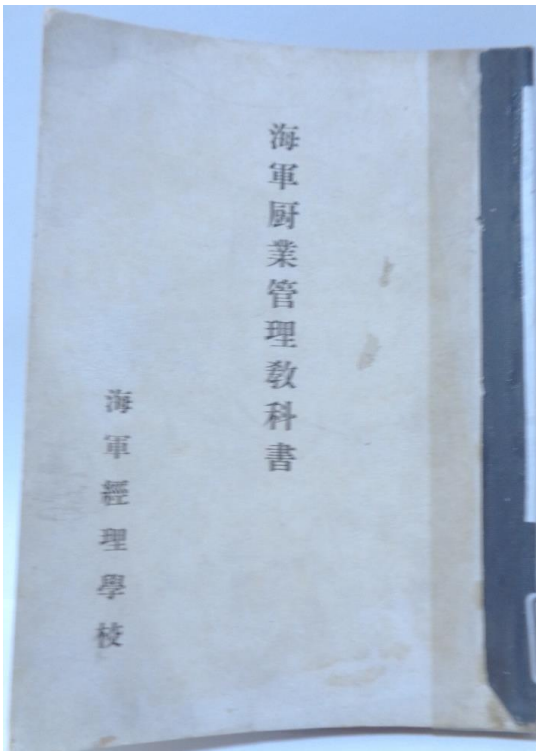 海軍厨業管理敎科書
海軍經理學校